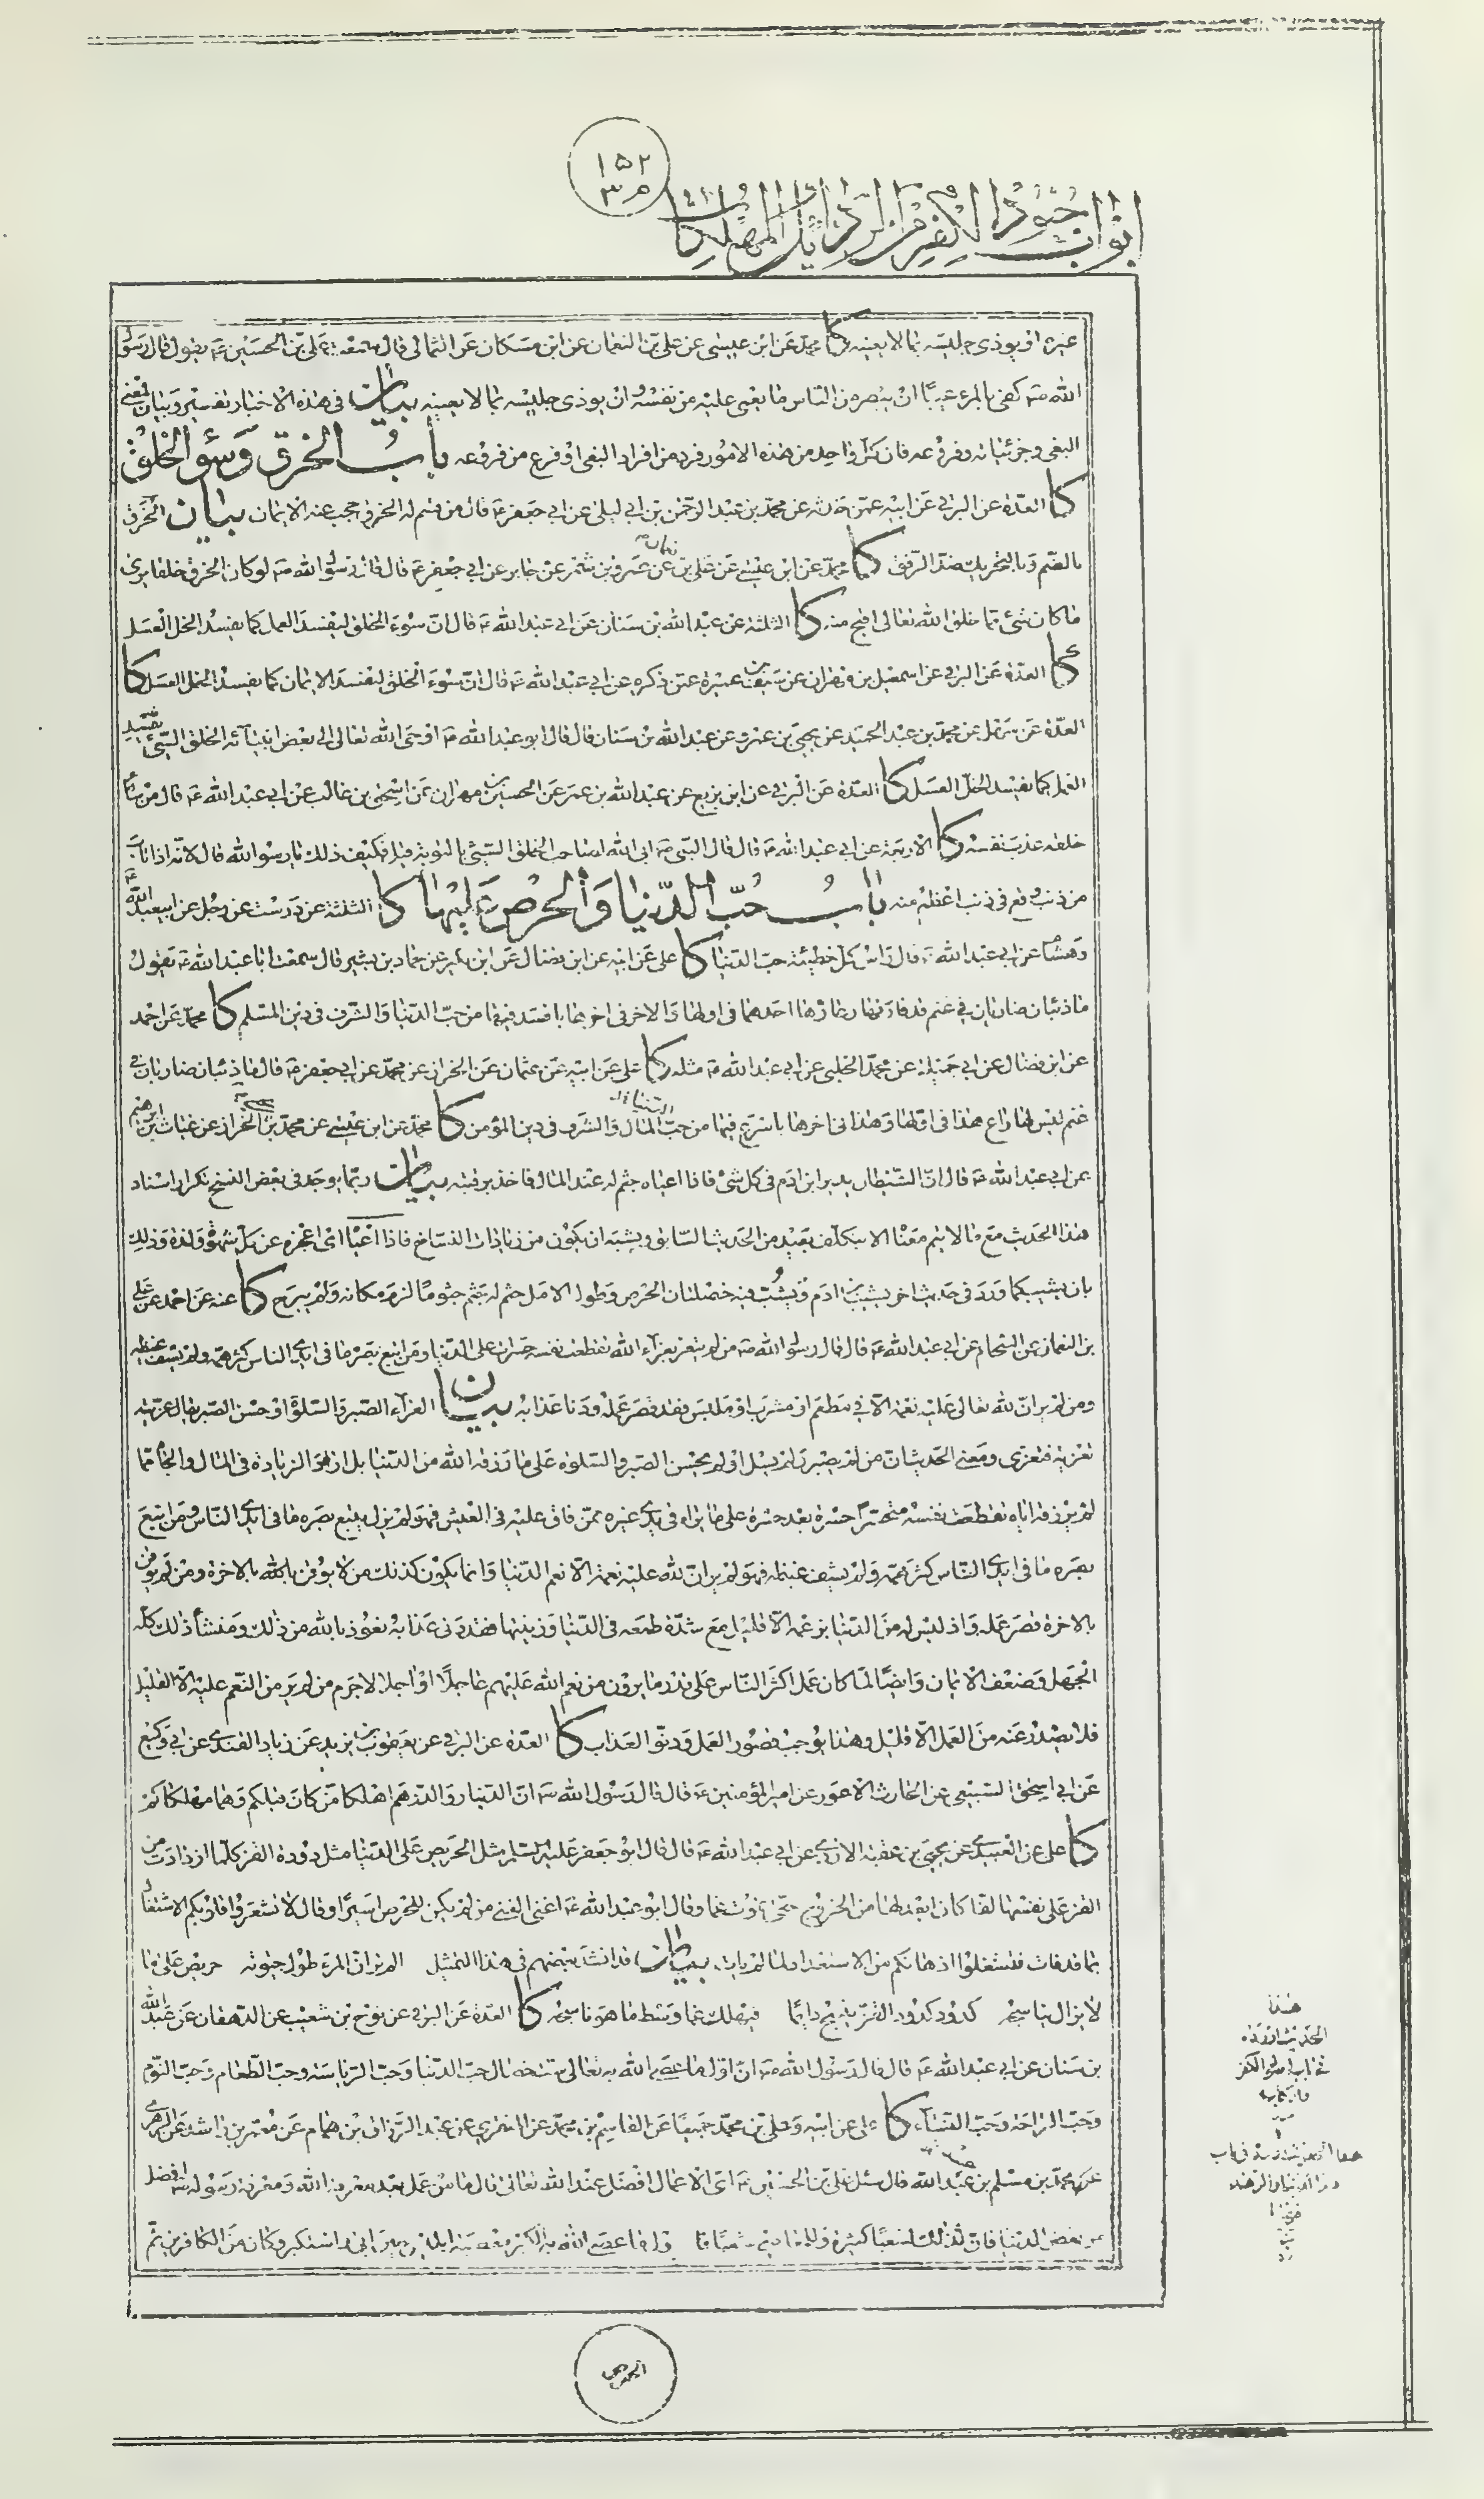 ١٥٢
م ٣
ابواب جنود الكفر من الرذائل والمهلكات
غيره او يوذى جليسه بما لا يعنيه كا محمد عن ابن عيسى عن على بن النعمان عن ابن مسكان عن الثمالى قال سمعت على بن الحسين ع يقول قال رسول
الله ص كفى بالمرء عيبًا ان يبصر من الناس ما يعمى عليه من نفسه وان يوذى جليسه بما لا يعنيه بيان فى هذه الاخبار تفسير وبيان لمعنى
البغى وجزئياته وفروعه فان كل واحد من هذه الامور فرد من افراد البغى او فرع من فروعه باب الخرق وسوء الخلق
كا العدة عن البرقى عن ابيه عمن حدثه عن محمد بن عبد الرحمن بن ابى ليلى عن ابى جعفر ع قال من قسم له الخرق حجب عنه الايمان بيان الخرق
بالضم وبالتحريك ضد الرفق كا محمد عن ابن عيسى عن على بن عن عمرو بن شمر عن جابر عن ابى جعفر ع قال قال رسول الله ص لو كان الخرق خلقا يرى
ما كان شئ مما خلق الله تعالى اقبح منه كا الثلثة عن عبد الله بن سنان عن ابى عبد الله ع قال ان سوء الخلق ليفسد العمل كما يفسد الخل العسل
كا العدة عن البرقى عن اسمعيل بن مهران عن سيف بن عميرة عمن ذكره عن ابى عبد الله ع قال ان سوء الخلق ليفسد الايمان كما يفسد الخل العسل كا
العدة عن سهل عن محمد بن عبد الحميد عن يحيى بن عمرو عن عبد الله بن سنان قال قال ابو عبد الله ع اوحى الله تعالى الى بعض انبيائه الخلق السيئ يفسد
العمل كما يفسد الخل العسل كا العدة عن البرقى عن ابن بزيع عن عبد الله بن عمر عن الحسين بن مهران عن اسحق بن غالب عن ابى عبد الله ع قال من ساء
خلقه عذب نفسه كا الاربعة عن ابى عبد الله ع قال قال النبى ص ابى الله لصاحب الخلق السيئ بالتوبة قيل فكيف ذلك يا رسول الله قال لانه اذا تاب
من ذنب وقع فى ذنب اعظم منه باب حب الدنيا والحرص عليها كا الثلثة عن درست عن رجل عن ابيعبد الله ع
وهشام عن ابى عبد الله ع قال راس كل خطيئة حب الدنيا كا على عن ابيه عن ابن فضال عن ابن بكير عن حماد بن بشير قال سمعت ابا عبد الله ع يقول
ما ذئبان ضاريان فى غنم قد فارقها رعاؤها احدهما فى اولها والاخر فى اخرها بافسد فيها من حب الدنيا والشرف فى دين المسلم كا محمد عن احمد
عن ابن فضال عن ابى جميلة عن محمد الحلبى عن ابى عبد الله ع مثله كا على عن ابيه عن عثمان عن الخراز عن محمد عن ابى جعفر ع قال ما ذئبان ضاريان فى
غنم ليس لها راع هذا فى اولها وهذا فى اخرها باسرع فيها من حب المال والشرف فى دين المؤمن كا محمد عن ابن عيسى عن محمد بن الخراز عن غياث بن ابرهيم
عن ابى عبد الله ع قال ان الشيطان يدير ابن ادم فى كل شئ فاذا اعياه جثم له عند المال فاخذ برقبته بيان ربما يوجد فى بعض النسخ تكرار اسناد
هذا الحديث مع ما لا يتم معناه الا بتكلف بعيد من الحديث السابق ويشبه ان يكون من زيادات النساخ فاذا اعياه اى اعجزه عن كل شهوة ولذة وذلك
بان يشيب كما ورد فى حديث اخر يشيب ابن ادم ويشب فيه خصلتان الحرص وطول الامل جثم له يجثم جثوما لزم مكانه ولم يبرح كا عنه عن احمد عن على
بن النعمان عن الشحام عن ابى عبد الله ع قال قال رسول الله ص من لم يتعز بعزاء الله تقطعت نفسه حسرات على الدنيا ومن اتبع بصره ما فى ايدى الناس كثر همه ولم يشف غيظه
ومن لم ير ان لله تعالى عليه نعمة الا فى مطعم او مشرب او ملبس فقد قصر عمله ودنا عذابه بيان العزاء الصبر والسلوة او حسن الصبر يقال عزيته
تعزية فتعزى ومعنى الحديث ان من لم يصبر ولم يسل او لم يحسن الصبر والسلوة على ما رزقه الله من الدنيا بل اراد الزيادة فى المال والجاه مما
لم يرزقه اياه تقطعت نفسه متحسرا حسرة بعد حسرة على ما يراه فى يدى غيره ممن فاق عليه فى العيش فهو لم يزل يتبع بصره ما فى ايدى الناس ومن اتبع
بصره ما فى ايدى الناس كثر همه ولم يشف غيظه فهو لم ير ان لله عليه نعمة الا نعم الدنيا وانما يكون كذلك من لا يوقن بالله بالاخرة ومن لم يوقن
بالاخرة قصر عمله واذ ليس له من الدنيا بزعمه الا قليل مع شدة طمعه فى الدنيا وزينتها فقد دنى عذابه نعوذ بالله من ذلك ومنشأ ذلك كله
الجهل وضعف الايمان وايضًا لما كان عمل اكثر الناس على قدر ما يرون من نعم الله عليهم عاجلًا او اجلا لاجرم من لم ير من النعم عليه الا القليل
فلا يصدر عنه من العمل الا قليل وهذا يوجب قصور العمل ودنو العذاب كا العدة عن البرقى عن يعقوب بن يزيد عن زياد القندى عن ابى وكيع
عن ابى اسحق السبيعى عن الحارث الاعور عن امير المؤمنين ع قال قال رسول الله ص ان الدينار والدرهم اهلكا من كان قبلكم وهما مهلكاكم
كا على عن العبيدى عن يحيى بن عقبة الازدى عن ابى عبد الله ع قال قال ابو جعفر عليه السلام مثل الحريص على الدنيا مثل دودة القز كلما ازدادت من
القز على نفسها لفا كان ابعد لها من الخروج حتى تموت غما وقال ابو عبد الله ع اغنى الغنى من لم يكن للحرص اسيرًا وقال لا تشعروا قلوبكم الاشتغال
بما قد فات فتشغلوا اذهانكم عن الاستعداد لما لم يات بيان قد انشد بعضهم فى هذا التمثيل الم تر ان المرء طول حيوته حريص على ما
لا يزال يناسجه كدود كدود القز ينسج دايمًا فيهلك غما وسط ما هو ناسجه كا العدة عن البرقى عن نوح بن شعيب عن الدهقان عن عبد الله
بن سنان عن ابى عبد الله ع قال قال رسول الله ص ان اول ما عصى الله به تعالى ست خصال حب الدنيا وحب الرياسة وحب الطعام وحب النوم
وحب الراحة وحب النساء كا على عن ابيه وعلى بن محمد جميعًا عن القاسم بن محمد عن المنقرى عن عبد الرزاق بن همام عن معمر بن راشد عن الزهرى
محمد بن مسلم بن عبد الله قال سئل على بن الحسين ع اى الاعمال افضل عند الله تعالى قال ما من عمل بعد معرفة الله ومعرفة رسوله ص افضل
من بغض الدنيا فان لذلك لشعبًا كثيرة وللمعاصى شعبًا فاول ما عصى الله به الكبر معصية ابليس حين ابى واستكبر وكان من الكافرين ثم
هذا
الحديث اورده
فى باب اصول الكفر
الحرص